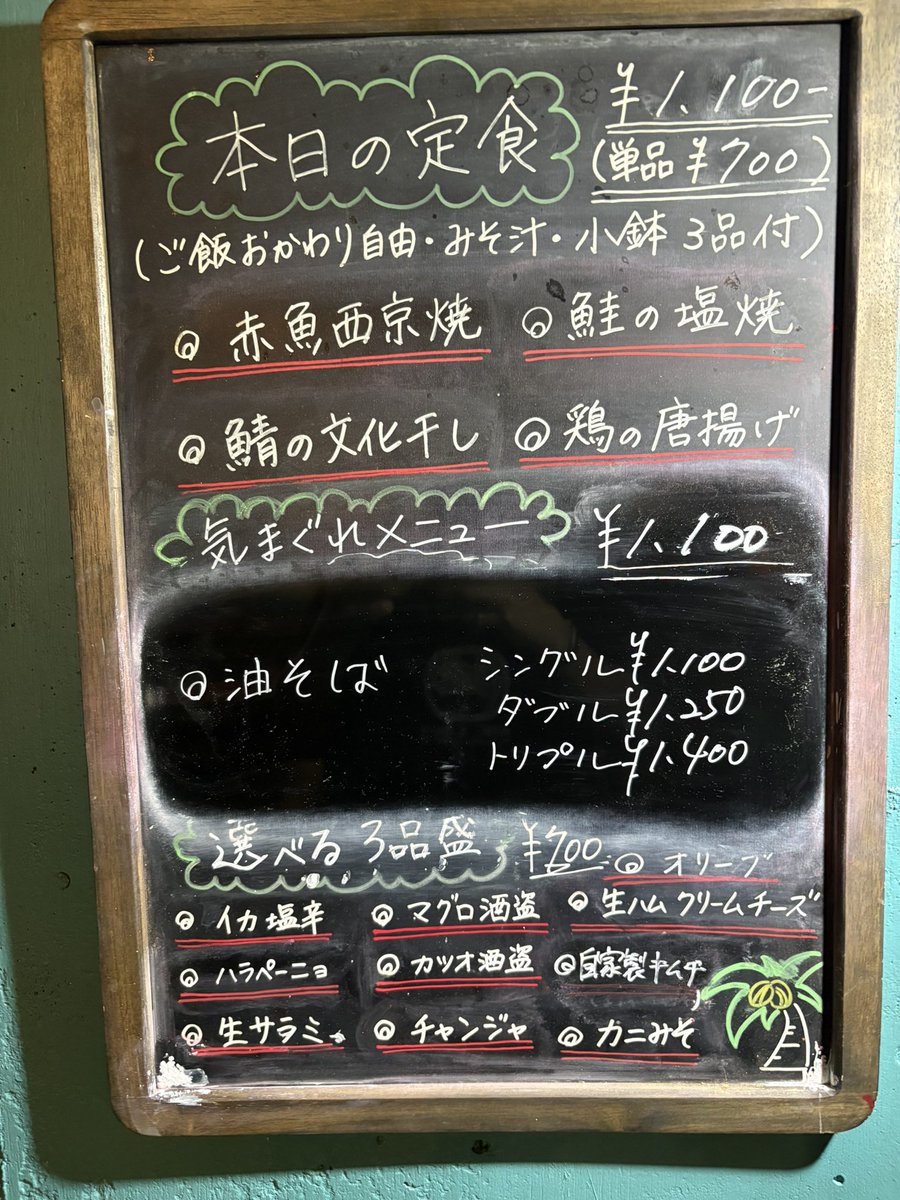 本日の定食 ¥1.100-
(単品¥700)
(ご飯おかわり自由・みそ汁・小鉢3品付)
◎赤魚西京焼 ◎鮭の塩焼
◎鯖の文化干し ◎鶏の唐揚げ
気まぐれメニュー ¥1.100
◎油そば シングル¥1.100
ダブル¥1.250
トリプル¥1.400
選べる3品盛 ¥700 ◎オリーブ
◎イカ塩辛 ◎マグロ酒盗 ◎生ハムクリームチーズ
◎ハラペーニョ ◎カツオ酒盗 ◎自家製キムチ
◎生サラミ ◎チャンジャ ◎カニみそ